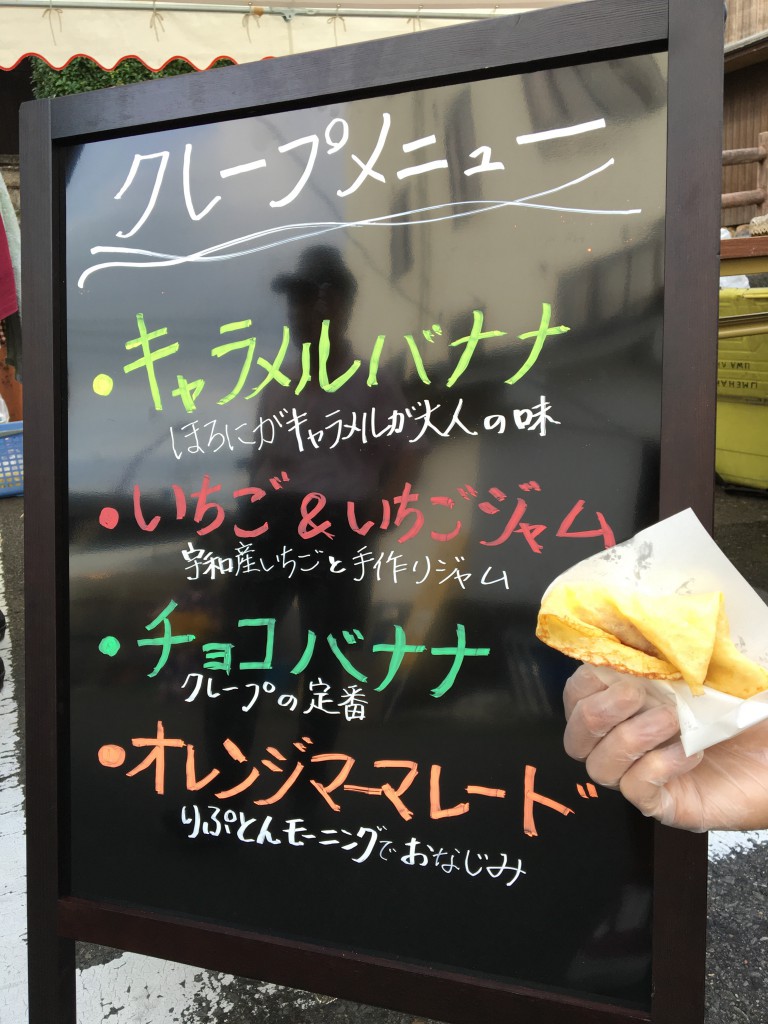 クレープメニュー
・キャラメルバナナ
ほろにがキャラメルが大人の味
・いちご&いちごジャム
宇和産いちごと手作りジャム
・チョコバナナ
クレープの定番
・オレンジマーマレード
りぷとんモーニングでおなじみ